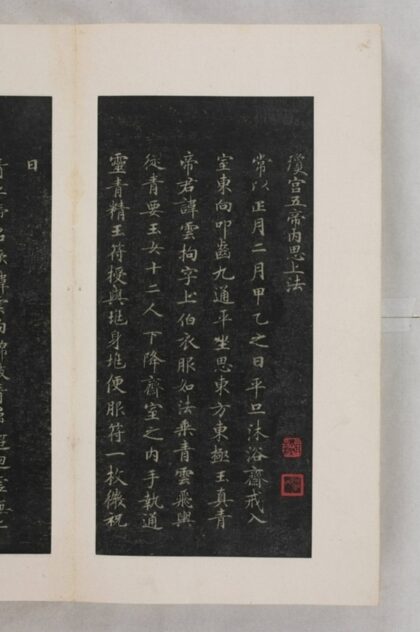 瓊宫五帝内思上法
常以正月二月甲乙之日平旦沐浴齋戒入
室東向叩齒九通平坐思東方東極玉真青
帝君諱雲拘字上伯衣服如法乘青雲飛輿
從青要玉女十二人下降齋室之内手執通
靈青精玉符授與垗身垗便服符一枚微祝
曰